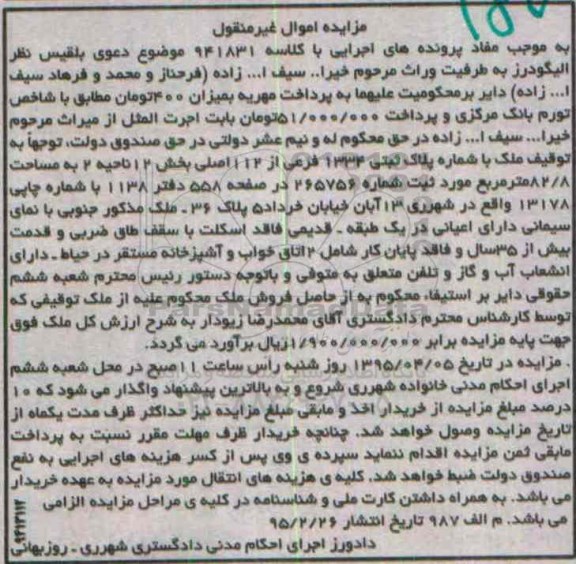 مزایده اموال غیرمنقول
به موجب مفاد پرونده های اجرایی با کلاسه ۹۴۱۸۳۱ موضوع دعوی بلقیس نظر
الیگودرز به طرفیت وراث مرحوم خیرا.. سیف ا... زاده (فرحناز و محمد و فرهاد سیف
ا... زاده) دایر برمحکومیت علیهما به پرداخت مهریه بمیزان ۴۰۰تومان مطابق با شاخص
تورم بانک مرکزی و پرداخت ۵۱/۰۰۰/۰۰۰تومان بابت اجرت المثل از میراث مرحوم
خیرا... سیف ا... زاده در حق محکوم له و نیم عشر دولتی در حق صندوق دولت، توجهاً به
توقیف ملک با شماره پلاک ثبتی ۱۳۳۴ فرعی از ۱۱۲اصلی بخش ۱۲ناحیه ۲ به مساحت
۸۲/۸مترمربع مورد ثبت شماره ۲۶۵۷۵۶ در صفحه ۵۵۸ دفتر ۱۱۳۸ با شماره چاپی
۱۳۱۷۸ واقع در شهرری ۱۳آبان خیابان خرداد۵ پلاک ۳۶ ـ ملک مذکور جنوبی با نمای
سیمانی دارای اعیانی در یک طبقه ـ قدیمی فاقد اسکلت با سقف طاق ضربی و قدمت
بیش از ۳۵سال و فاقد پایان کار شامل ۲اتاق خواب و آشپزخانه مستقر در حیاط ـ دارای
انشعاب آب و گاز و تلفن متعلق به متوفی و باتوجه دستور رئیس محترم شعبه ششم
حقوقی دایر بر استیفاء محکوم به از حاصل فروش ملک محکوم علیه از ملک توقیفی که
توسط کارشناس محترم دادگستری آقای محمدرضا زیودار به شرح ارزش کل ملک فوق
جهت پایه مزایده برابر ۱/۹۰۰/۰۰۰/۰۰۰ریال برآورد می گردد.
. مزایده در تاریخ ۱۳۹۵/۰۴/۰۵ روز شنبه رأس ساعت ۱۱صبح در محل شعبه ششم
اجرای احکام مدنی خانواده شهرری شروع و به بالاترین پیشنهاد واگذار می شود که ۱۰
درصد مبلغ مزایده از خریدار اخذ و مابقی مبلغ مزایده نیز حداکثر ظرف مدت یکماه از
تاریخ مزایده وصول خواهد شد. چنانچه خریدار ظرف مهلت مقرر نسبت به پرداخت
مابقی ثمن مزایده اقدام ننماید سپرده ی وی پس از کسر هزینه های اجرایی به نفع
صندوق دولت ضبط خواهد شد. کلیه ی هزینه های انتقال مورد مزایده به عهده خریدار
می باشد. به همراه داشتن کارت ملی و شناسنامه در کلیه ی مراحل مزایده الزامی
می باشد. م الف ۹۸۷ تاریخ انتشار ۹۵/۲/۲۶
دادورز اجرای احکام مدنی دادگستری شهرری ـ روزبهانی